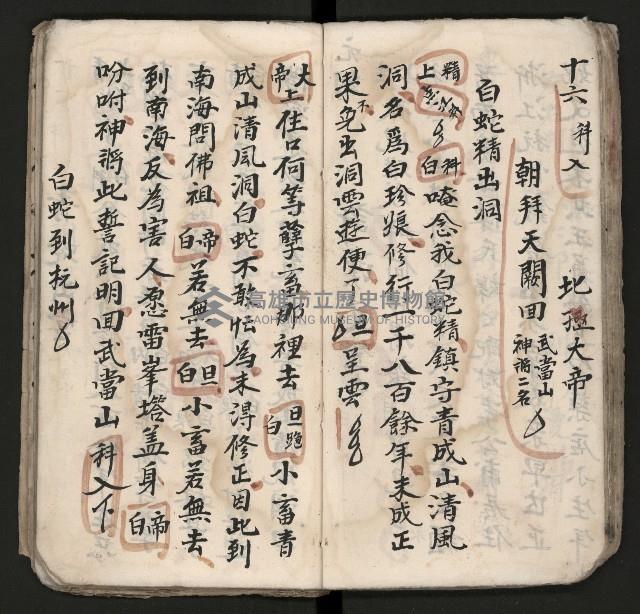 十六 科入 北極大帝
朝拜天闕回 武當山神將二名
白蛇精出洞
精上 科白 唵念我白蛇精鎮守青成山清風
洞名為白珍娘修行一千八百餘年未成正
果不免出洞雲遊便了 旦呈雲
大帝上住口何等孽畜那裡去 旦跪白 小畜青
成山清風洞白蛇不敢忙為未淂修正因此到
南海問佛祖 帝白 若無去 旦白 小畜若無去
到南海反為害人忍雷峯塔盖身 帝白
吩咐神將此誓記明回武當山 科入下
白蛇到杭州
高雄市立歷史博物館
KAOHSIUNG MUSEUM OF HISTORY